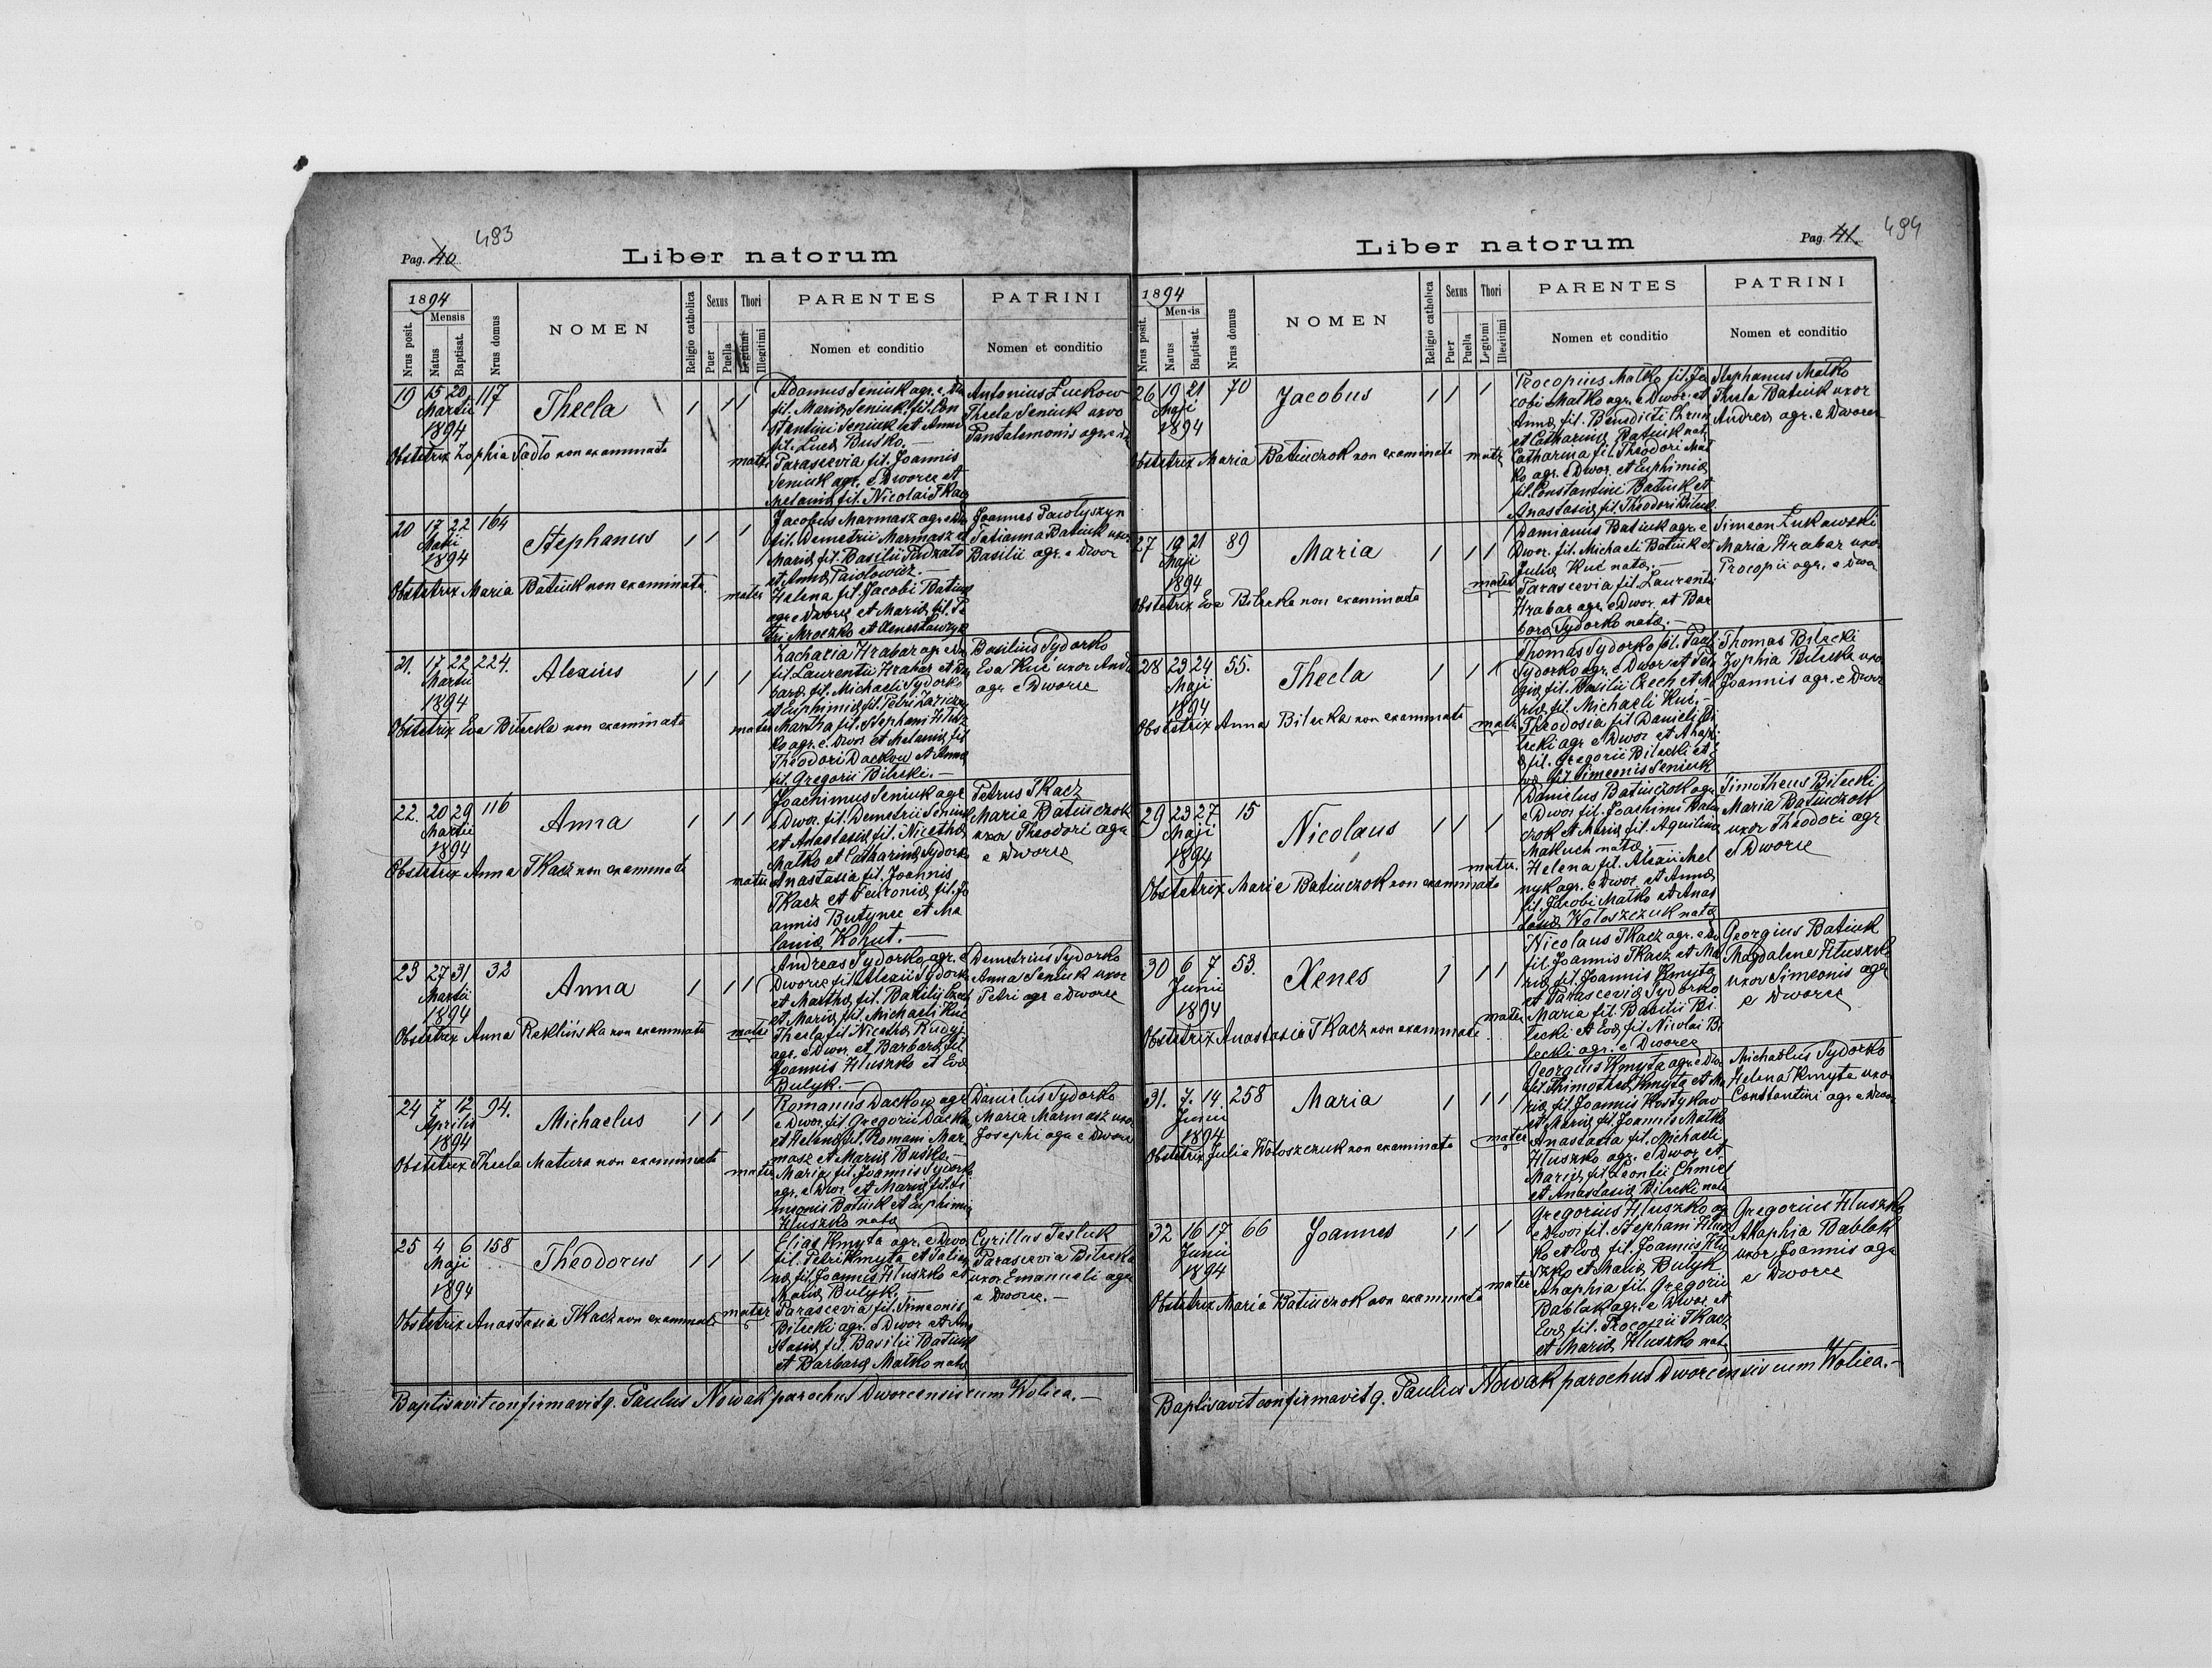 Pag. 40 483
Liber natorum
1894
Mensis
Nrus posit.
Natus
Baptisat.
Nrus domus
NOMEN
Religio catholica
Sexus
Puer
Puella
Thori
Legitimi
Illegitimi
PARENTES
Nomen et conditio
PATRINI
Nomen et conditio
19 15 20 117
Martii
1894
Thecla
1 1 1
Obstetrix Zophia Sadło non examinata
Adamus Seniuk agr. e
fil. Mariæ Seniuk fil. Con
stantini Seniuk et Annæ
fil. Lucæ Busko. —
mater Parascevia fil. Joannis
Seniuk agr. e Dworce et
Melaniæ fil. Nicolai Tkacz
Antonius Łuckow
Thecla Seniuk uxo
Pantalemonis agr. e
20 17 22 164
1894
Stephanus
1 1 1
Obstetrix Maria Batiuk non examinata
Jacobus Marmasz agr. e
fil. Demetrii Marmasz e
Mariæ fil. Basilii
et Annæ
mater Helena fil. Jacobi Batiuk
agr. e Dworce et Mariæ fil. Pe
tri Mroczko et
Joannes Pawłyszyn
Tatianna Batiuk uxor
Basilii agr. e Dwor
21. 17 22 224.
Martii
1894
Alexius
1 1 1
Obstetrix Eva Bilecka non examinata
Zacharia Hrabar agr. e
fil. Laurentii Hrabar et Bar
baræ fil. Michaeli Sydorko
et Euphimiæ fil. Petri
mater Martha fil. Stephani Hłusz
ko agr. e. Dwor et Melaniæ fil
Theodori Dackow et Annæ
fil. Gregorii Bilecki. —
Basilius Sydorko
Eva Kuć uxor
agr. e Dworce
22. 20 29 116
Martii
1894
Anna
1 1 1
Obstetrix Anna Tkacz non examinata
Joachimus Seniuk agr
e Dwor. fil. Demetrii Seniuk
et Anastasiæ fil. Nicethæ
Matko et Catharinæ Sydork
mater Anastasia fil. Joannis
Tkacz et Fevroniæ fil. Jo
annis Butynec et Me
laniæ Kohut. —
Petrus Tkacz
Maria Batiuczok
uxor Theodori agr
e Dworce
23 27 31 32
Martii
1894
Anna
1 1 1
Obstetrix Anna Reklińska non examinata
Andreas Sydorko agr. e
Dworce fil. Alexii Sydork
et Marthæ fil. Basilii Czech
et Mariæ fil. Michaeli Kuć
mater Thecla fil. Nicethæ Rudyj
agr. e Dwor. et Barbaræ fil
Joannis Hłuszko et Evæ
Bulyk. —
Demetrius Sydorko
Anna Seniuk uxor
Petri agr e Dworce
24 7 12 94.
Aprilis
1894
Michaelus
1 1 1
Obstetrix Thecla Matura non examinata
Romanus Dackow agr
e Dwor. fil Gregorii Dackow
et Helenæ fil. Romani Mar
masz et Mariæ Busko. —
mater Maria fil. Joannis Sydork
agr. e Dwor. et Mariæ fil. Si
meonis Batiuk et Euphimiæ
Hłuszko nata
Danielus Sydorko
Maria Marmasz uxo
Josephi agr e Dworc
25 4 6 158
Maji
1894
Theodorus
1 1 1
Obstetrix Anastasia Tkacz non examinata
Elias Kmyta agr. e Dwo
fil. Petri Kmyta et Tatian
næ fil. Joannis Hłuszko et
Mariæ Bulyk. —
mater Parascevia fil. Simeonis
Bilecki agr. e Dwor et Ana
stasiæ fil. Basilii Batiuk
et Barbaræ Matko nata
Cyrillus Tesluk
Parascevia Bilecka
uxor Emanueli agr
e Dworce. —
Baptisavit confirmavitq. Paulus Nowak parochus Dworcensis cum Wolica. —
Liber natorum
Pag. 41. 494
1894
Mensis
Nrus posit.
Natus
Baptisat.
Nrus domus
NOMEN
Religio catholica
Sexus
Puer
Puella
Thori
Legitimi
Illegitimi
PARENTES
Nomen et conditio
PATRINI
Nomen et conditio
26 19 21 70
Maji
1894
Jacobus
1 1 1
Obstetrix Maria Batiuczok non examinata
Procopius Matko fil. Ja
cobi Matko agr. e Dwor. et
Annæ fil. Benedicti
et Catharinæ Batiuk nat.
mater Catharina fil. Theodori Mat
ko agr. e Dwor. et Euphimiæ
fil. Constantini Batiuk et
Anastasiæ fil. Theodori
Stephanus Matko
Thecla Batiuk uxor
Andreæ agr. e Dworce
27 19 21 89
Maji
1894
Maria
1 1 1
Obstetrix Eva Bilecka non examinata
Damianus Batiuk agr. e
Dwor. fil. Michaeli Batiuk et
Juliæ Kuć nata. —
mater Parascevia fil. Laurenti
Hrabar agr. e Dwor. et Bar
baræ Sydorko nata. —
Simeon Łukawski
Maria Hrabar uxo
Procopii agr. e Dwo
28 23 24 55.
Maji
1894
Thecla
1 1 1
Obstetrix Anna Bilecka non examinata
Thomas Sydorko fil. Pauli
Sydorko agr. e Dwor et Pela
giæ fil. Basilii Czech et Ma
riæ fil. Michaeli Kuć. —
mater Theodosia fil. Danieli Bi
lecki agr. e Dwor et
fil. Gregorii Bilecki et E
væ fil Simeonis Seniuk
Thomas Bilecki
Zophia Bilecka uxo
Joannis agr. e Dwor
29 23 27 15
Maji
1894
Nicolaus
1 1 1
Obstetrix Marie Batiuczok non examinata
Danielus Batiuczok agr
e Dwor fil. Joachimi Batiu
czok et Mariæ fil. Aquilinæ
Makuch nata. —
mater. Helena fil. Alexii Mel
nyk agr. e Dwor. et Annæ
fil. Jacobi Matko et Anas
tasiæ Wołoszczuk nata
Timotheus Bilecki
Maria Batiuczok
uxor Theodori agr
e Dworce
30 6 7 53.
Junii
1894
Xenes
1 1 1
Obstetrix Anastasia Tkacz non examinata
Nicolaus Tkacz agr. e
fil. Joannis Tkacz et Ma
riæ fil. Joannis Kmyta
et Parasceviæ Sydorko
mater Maria fil. Basilii Bi
lecki et Evæ fil Nicolai Bi
lecki agr. e Dworce
Georgius Batiuk
Magdalena Hłuszko
uxor Simeonis agr
e Dworce
31. 7. 14. 258
Junii
1894
Maria
1 1 1
Obstetrix Julia Wołoszczuk non examinata
Georgius Kmyta agr. e Dwo
fil. Thimothei Kmyta et Ma
riæ fil. Joannis Kostykow
et Mariæ fil. Joannis Matko
mater Anastasia fil. Michaeli
Hłuszko agr. e Dwor. et
Mariæ fil. Leontii Chmiel
et Anastasiæ Bilecki nata
Michaelus Sydorko
Helena Kmyta uxo
Constantini agr e Dwor
32 16 17 66
Junii
1894
Joannes
1 1 1
Obstetrix Maria Batiuczok non examinata
Gregorius Hłuszko ag
e Dwor fil. Stephani Hłusz
ko et Evæ fil. Joannis Hłu
szko et Mariæ Bulyk
mater Ahaphia fil. Gregorii
Bablak agr. e Dwor. et
Evæ fil. Procopii Tkacz
et Mariæ Hłuszko nata
Gregorius Hłuszko
Ahaphia Bablak
uxor Joannis agr
e Dworce
Baptisavit confirmavitq. Paulus Nowak parochus Dworcensis cum Wolica. —